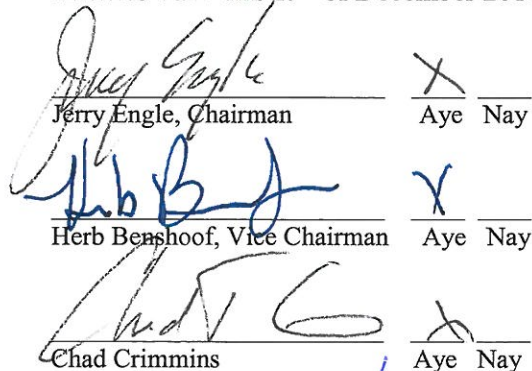 Jerry Engle X
Jerry Engle, Chairman Aye Nay
Herb Ben X
Herb Benshoof, Vice Chairman Aye Nay
Chad X
Chad Crimmins Aye Nay